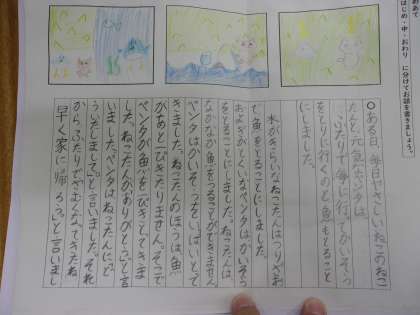 めあて
はじめ・中・おわり に分けてお話を書きましょう。
〇ある日、毎日やさしいねこのねこ
たんと、元気なペンタは、
ふたりで海に行って、かいそう
をとりに行くのと魚もとること
にしました。
水がきらいなねこたんはつりざお
で魚をとることにしました。
およぎがとくいなペンタはかいそう
をとることにしました。ねこたんは、
なかなか魚をつることができません。
ペンタはかいそうをいっぱいとって
きました。ねこたんのほうは魚
があと一ぴきたりません。そこで
ペンタが魚を一ぴきとってきま
した。ねこたんが「ありがとう。」と言
いました。ペンタはねこたんに「ど
ういたしまして。」と言いました。それ
からふたりで
早く家に帰ろう。」と言いまし